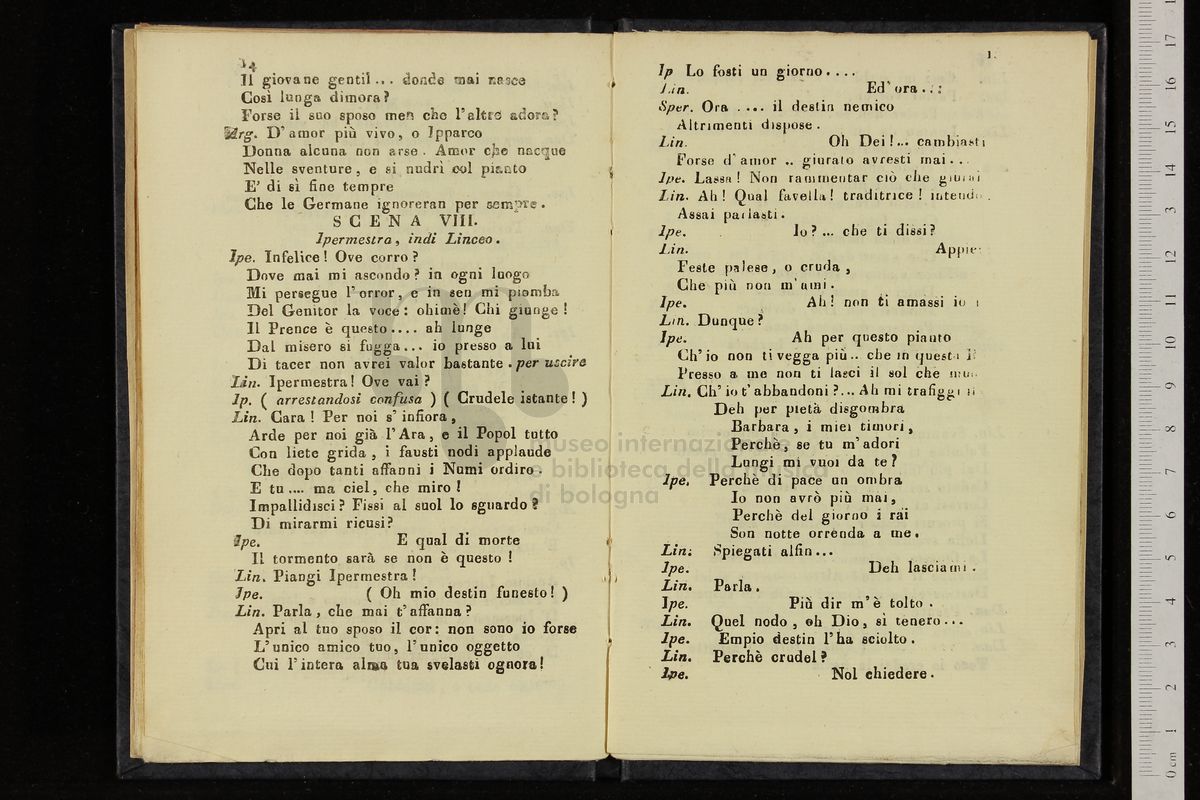 14
Il giovane gentil... donde mai nasce
Così lunga dimora?
Forse il suo sposo men che l'altre adora?
Arg. D'amor più vivo, o Ipparco
Donna alcuna non arse. Amor che nacque
Nelle sventure, e si nudrì col pianto
E' di sì fine tempre
Che le Germane ignoreran per sempre.
SCENA VIII.
Ipermestra, indi Linceo.
Ipe. Infelice! Ove corro?
Dove mai mi ascondo? in ogni luogo
Mi persegue l'orror, e in sen mi piomba
Del Genitor la voce: ohimè! Chi giunge!
Il Prence è questo.... ah lunge
Dal misero si fugga... io presso a lui
Di tacer non avrei valor bastante. per uscire
Lin. Ipermestra! Ove vai?
Ip. ( arrestandosi confusa ) ( Crudele istante! )
Lin. Cara! Per noi s'infiora,
Arde per noi già l'Ara, e il Popol tutto
Con liete grida, i fausti nodi applaude
Che dopo tanti affanni i Numi ordiro.
E tu.... ma ciel, che miro!
Impallidisci? Fissi al suol lo sguardo?
Di mirarmi ricusi?
Ipe. E qual di morte
Il tormento sarà se non è questo!
Lin. Piangi Ipermestra!
Ipe. ( Oh mio destin funesto! )
Lin. Parla, che mai t'affanna?
Apri al tuo sposo il cor: non sono io forse
L'unico amico tuo, l'unico oggetto
Cui l'intera alma tua svelasti ognora!
Ip Lo fosti un giorno....
Lin. Ed'ora..:
Sper. Ora .... il destin nemico
Altrimenti dispose.
Lin. Oh Dei!... cambiasti
Forse d'amor .. giurato avresti mai...
Ipe. Lassa! Non rammentar ciò che giurai
Lin. Ah! Qual favella! traditrice! intendo.
Assai parlasti.
Ipe. Io?... che ti dissi?
Lin. Appien
Feste palese, o cruda,
Che più non m'ami.
Ipe. Ah! non ti amassi io
Lin. Dunque?
Ipe. Ah per questo pianto
Ch'io non ti vegga più.. che in questi
Presso a me non ti lasci il sol che
Lin. Ch'io t'abbandoni?... Ah mi trafiggi
Deh per pietà disgombra
Barbara, i miei timori,
Perchè, se tu m'adori
Lungi mi vuoi da te?
Ipe. Perchè di pace un ombra
Io non avrò più mai,
Perchè del giorno i rai
Son notte orrenda a me.
Lin: Spiegati alfin...
Ipe. Deh lasciami.
Lin. Parla.
Ipe. Più dir m'è tolto.
Lin. Quel nodo, oh Dio, sì tenero...
Ipe. Empio destin l'ha sciolto.
Lin. Perchè crudel?
Ipe. Nol chiedere.
museo internazionale
e biblioteca della musica
di bologna
0 cm 1 2 3 4 5 6 7 8 9 10 11 12 13 14 15 16 17